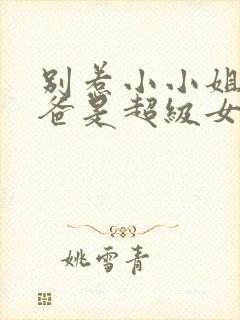 别惹小小姐
爸是超级女
姚雪青